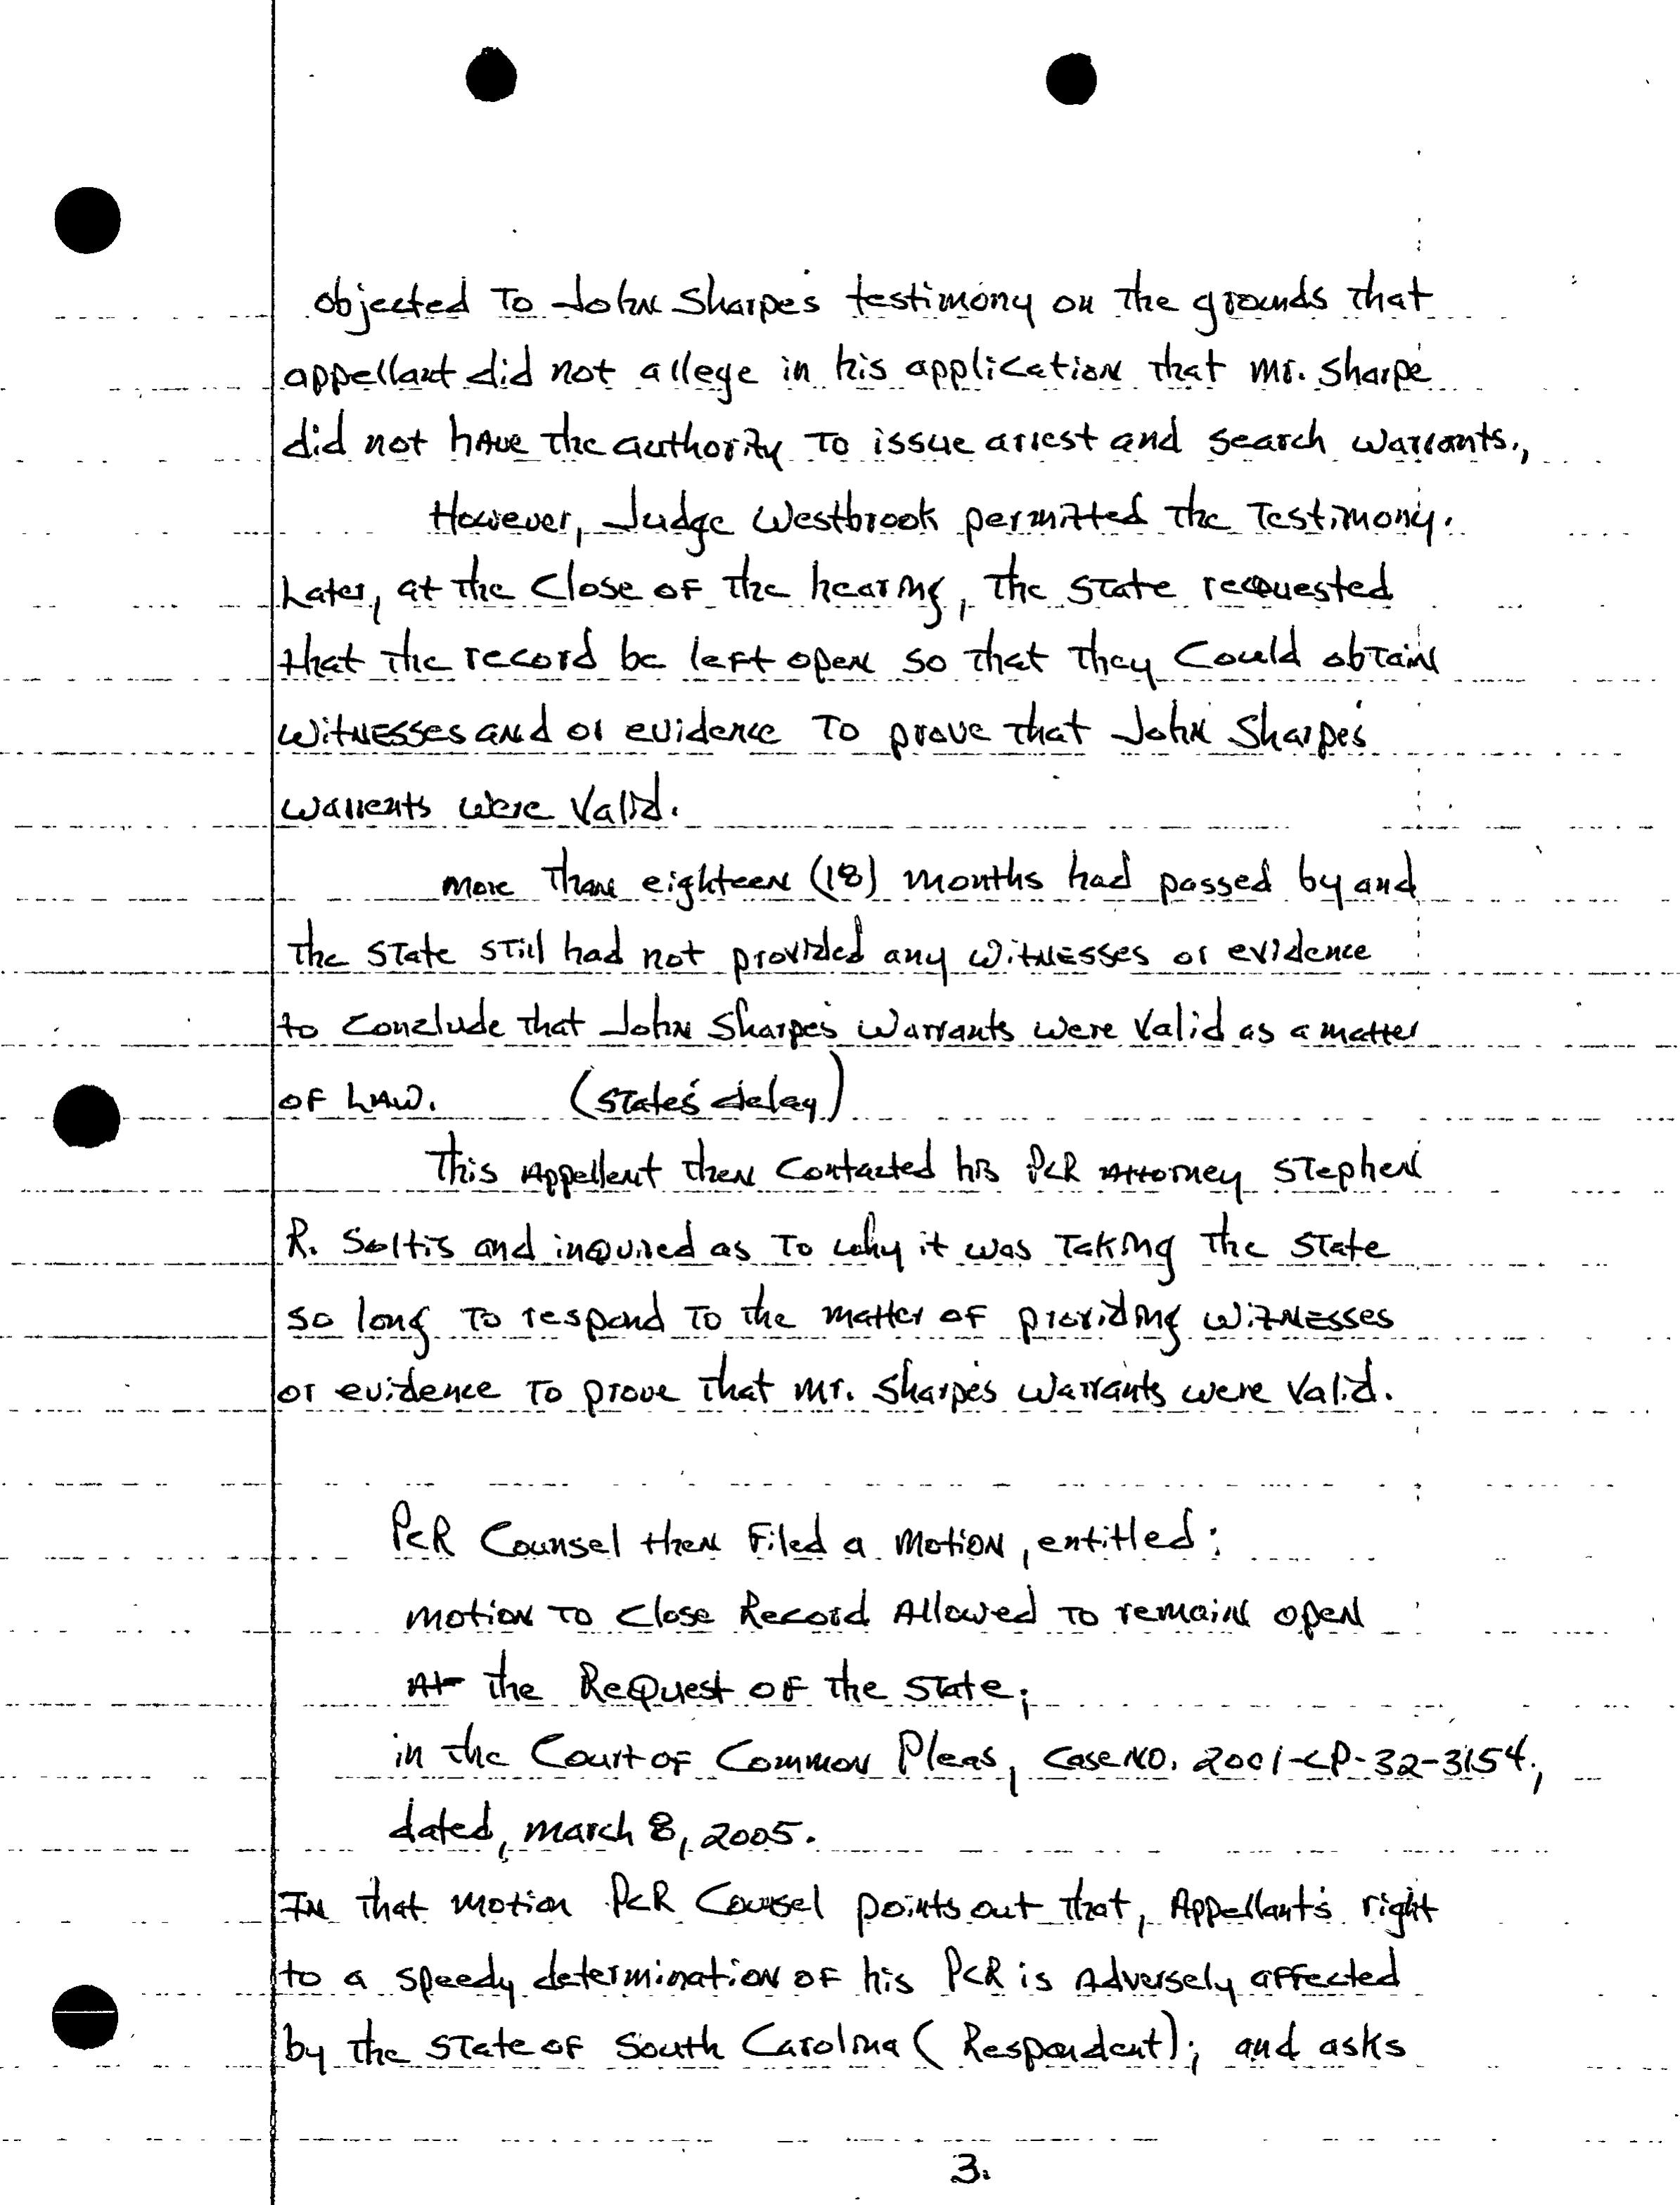 objected To John Sharpe's testimony on the grounds that
appellant did not allege in his application that Mr. Sharpe
did not have the authority To issue arrest and search warrants.,
However, Judge Westbrook permitted the Testimony.
Later, at the Close of the hearing, the State requested
that the record be left open so that they Could obtain
witnesses and or evidence To prove that John Sharpe's
warrents were Valid.
More Than eighteen (18) months had passed by and
the State still had not provided any witnesses or evidence
to Conclude that John Sharpe's warrants were Valid as a matter
of Law. (State's delay)
This Appellent then Contacted his PCR Attorney Stephen
R. Soltis and inquired as To why it was Taking the State
so long To respond To the matter of providing witnesses
or evidence To prove that Mr. Sharpe's warrants were Valid.
PCR Counsel then Filed a Motion, entitled:
Motion To Close Record Allowed To remain open
At the Request of the State;
in the Court of Common Pleas, Case No. 2001-CP-32-3154.,
dated, March 8, 2005.
In that Motion PCR Counsel points out that, Appellant's right
to a speedy determination of his PCR is Adversely affected
by the State of South Carolina (Respondent); and asks
3.